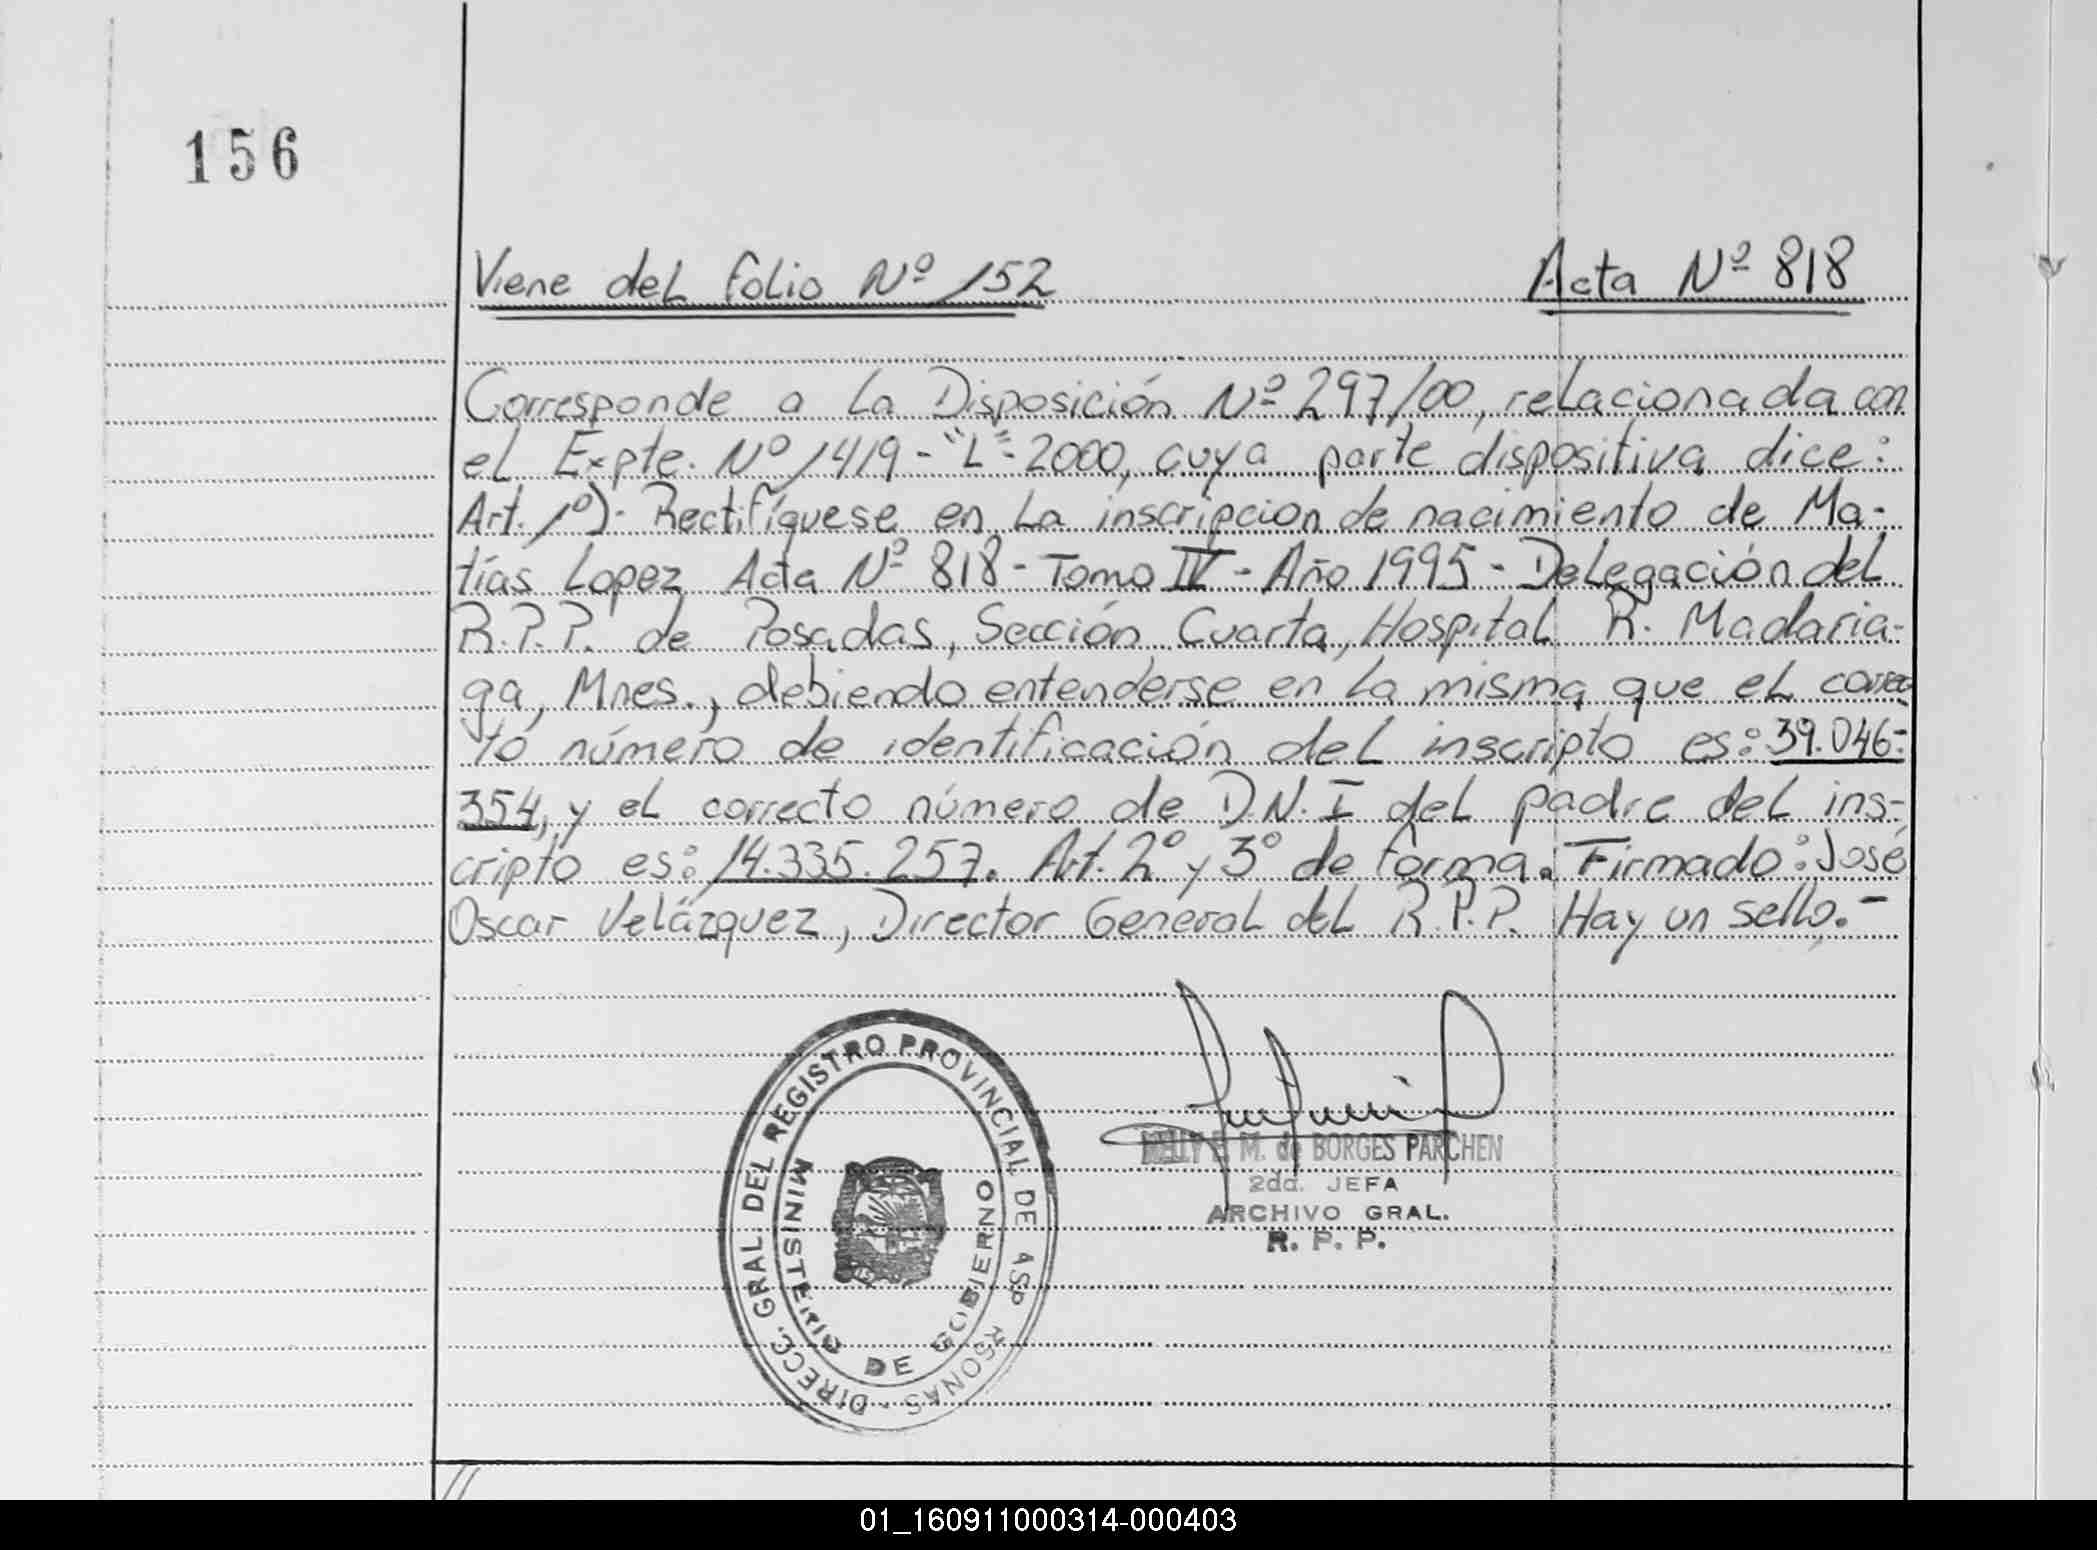 156
Viene del folio Nº 152 Acta Nº 818
Corresponde a la Disposición Nº 297/00, relacionada con
el Expte. Nº 1419-"L"-2000, cuya parte dispositiva dice:
Art. 1º)- Rectifíquese en la inscripcion de nacimiento de Ma-
tías Lopez Acta Nº 818 - Tomo IV - Año 1995 - Delegación del
R.P.P. de Posadas, Sección Cuarta, Hospital R. Madaria-
ga, Mnes., debiendo entenderse en la misma que el correc-
to número de identificación del inscripto es: 39.046-
354, y el correcto número de D.N.I del padre del ins-
cripto es: 14.335.257. Art. 2º y 3º de forma. Firmado: José
Oscar Velázquez, Director General del R.P.P. Hay un sello.-
DIRECC. GRAL DEL REGISTRO PROVINCIAL DE
MINISTERIO DE GOBIERNO
M. de BORGES PARCHEN
2da. JEFA
ARCHIVO GRAL.
R. P. P.
01_160911000314-000403